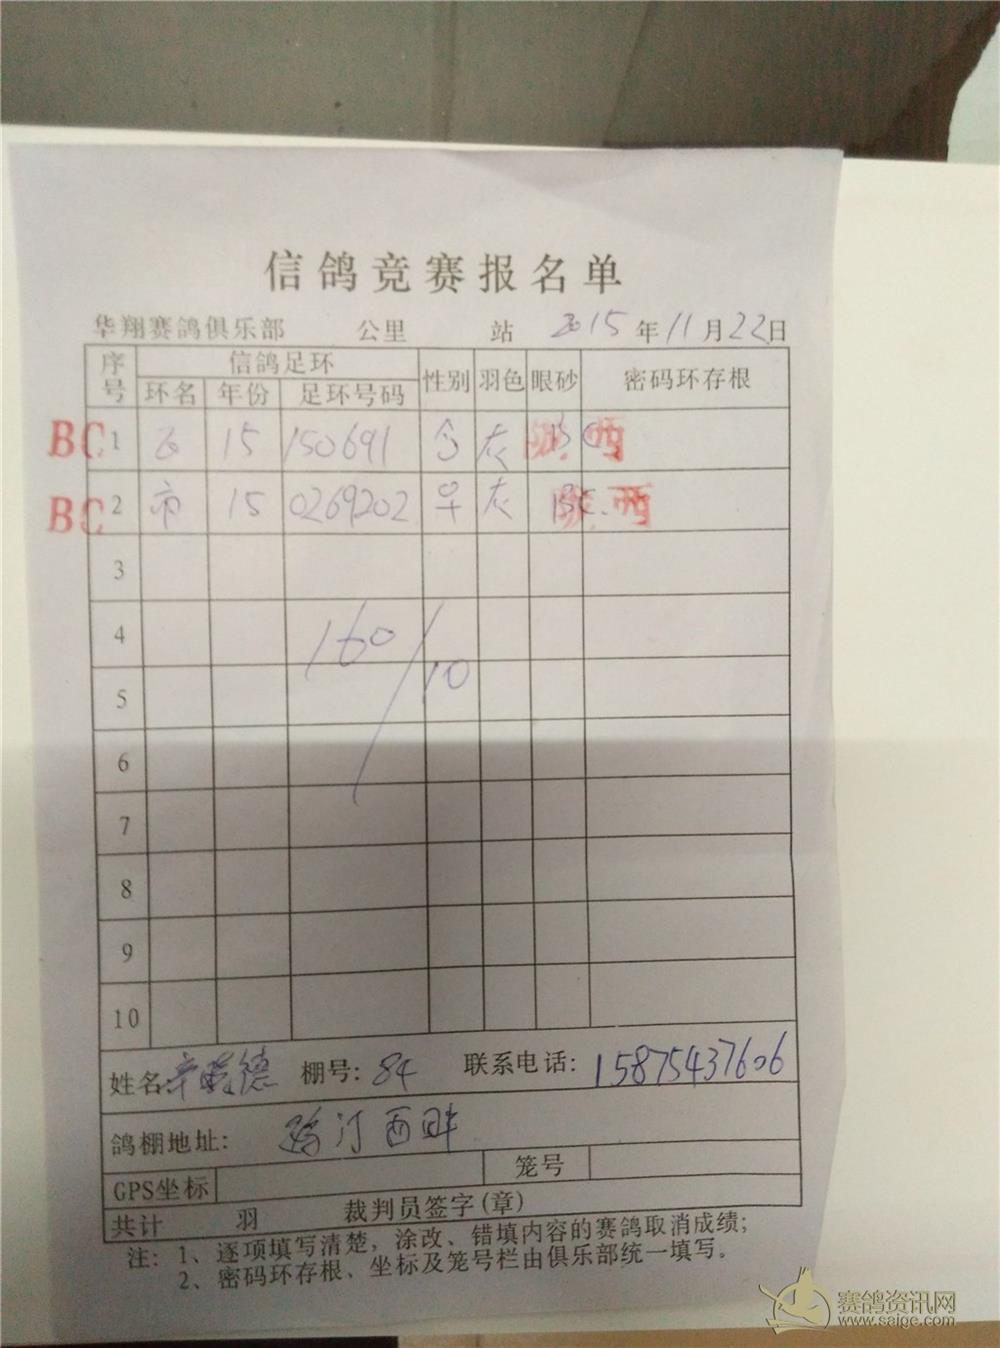 信鸽竞赛报名单
华翔赛鸽俱乐部 公里 站 2015年11月22日
序号 信鸽足环 性别 羽色 眼砂 密码环存根
环名 年份 足环号码
BC 1 15 150691 灰 西
BC 2 市 15 0269202 灰 西
3
4 160/10
5
6
7
8
9
10
姓名: 德 棚号: 84 联系电话: 15875437606
鸽棚地址: 汀西畔
GPS坐标 笼号
共计 羽 裁判员签字(章)
注: 1、逐项填写清楚, 涂改、错填内容的赛鸽取消成绩;
2、密码环存根、坐标及笼号栏由俱乐部统一填写。
赛鸽资讯网
www.saige.com